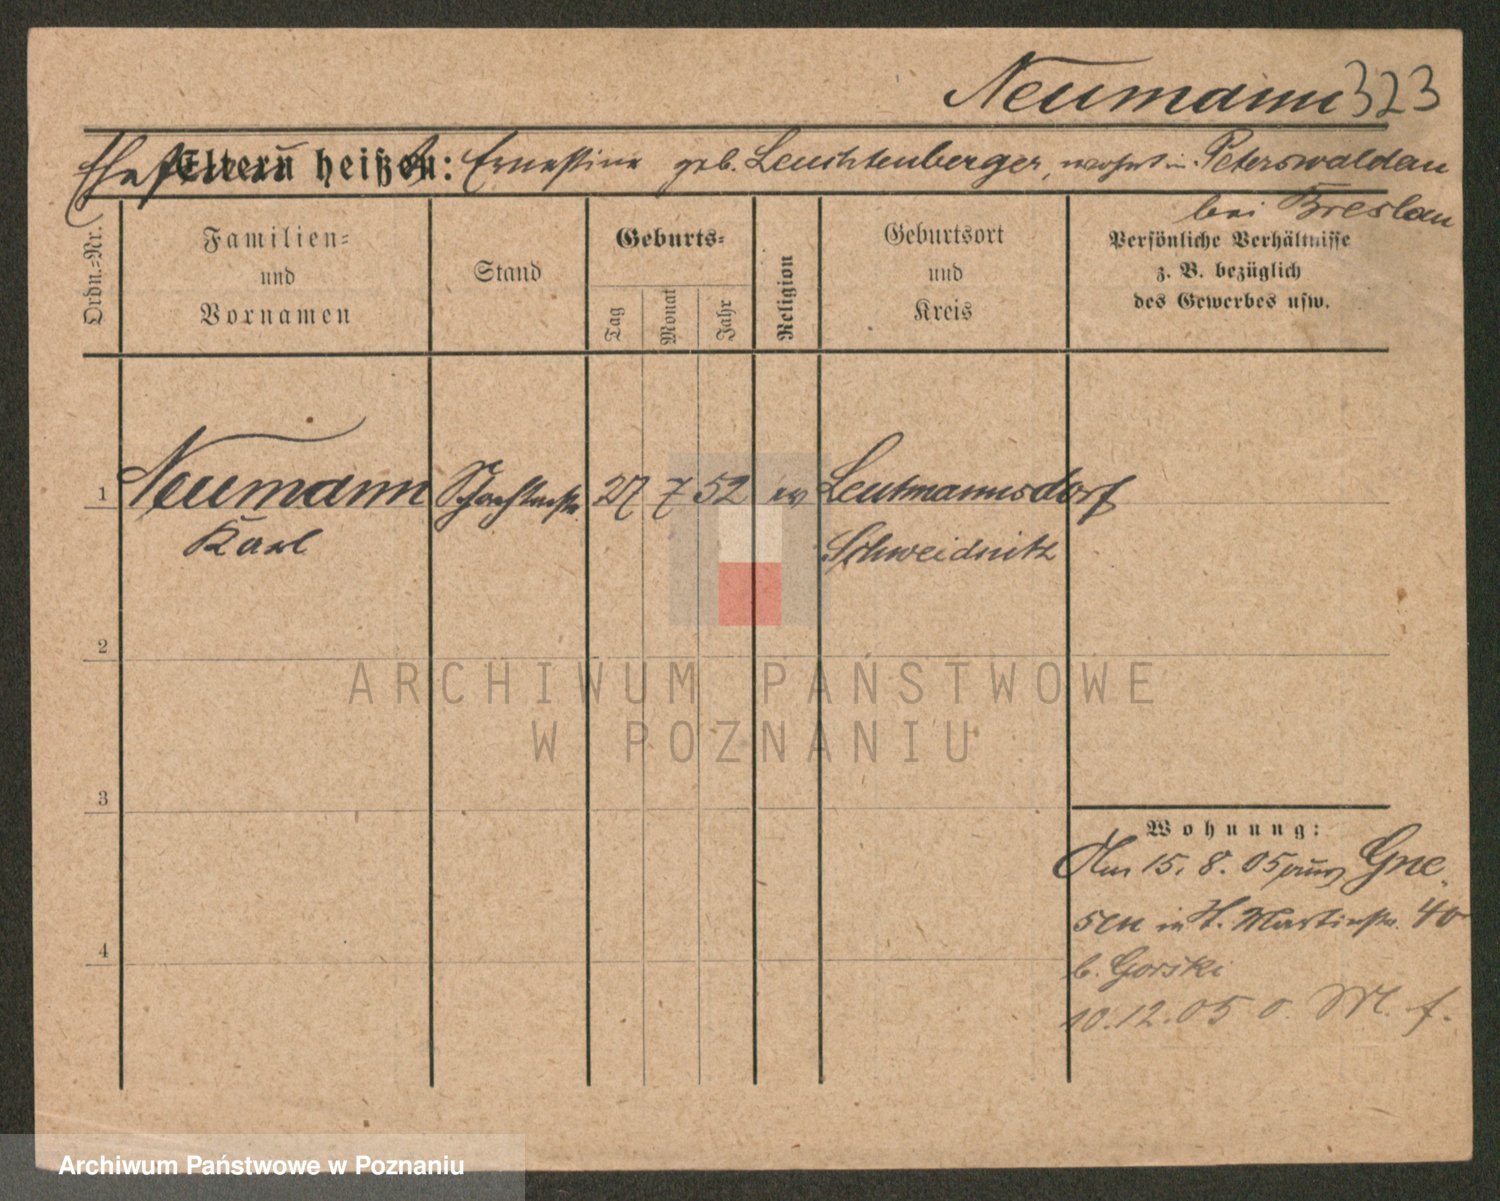 Neumann 323
Ehefrau Eltern heißen: Ernestine geb. Leuchtenberger, wohnt in Peterswaldau
bei Breslau
Ordn.-Nr.
Familien-
und
Vornamen
Stand
Geburts-
Tag
Monat
Jahr
Religion
Geburtsort
und
Kreis
Persönliche Verhältnisse
z. B. bezüglich
des Gewerbes usw.
1 Neumann 27 7 52 ev Leutmannsdorf
Karl Schweidnitz
2
3
4
Wohnung:
Am 15. 8. 05 Gne-
sen in St. Martinstr. 40
b. Gorski
10.12.05 o. M. f.
ARCHIWUM PAŃSTWOWE
W POZNANIU
Archiwum Państwowe w Poznaniu